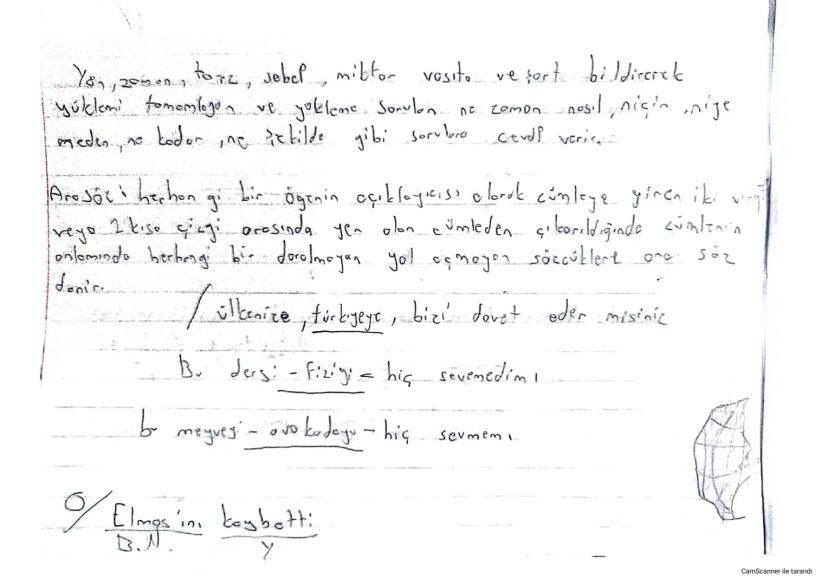 Yön, zaman, tarz, sebep, miktar vasıta ve şart bildirerek
yüklemi tamamlayan ve yükleme sorulan ne zaman nasıl, niçin, niye
neden, ne kadar, ne şekilde gibi sorulara cevap verir.
Arasöz: herhangi bir ögenin açıklayıcısı olarak cümleye giren iki virgül
veya 2 kısa çizgi arasında yer alan cümleden çıkarıldığında cümlenin
anlamında herhangi bir daralmayan yol açmayan sözcüklere ara söz
denir.
ülkenize, türkiyeye, bizi davet eder misiniz
Bu dersi - fiziği - hiç sevemedim
bu meyveyi - avokadoyu - hiç sevmem
O/ Elmas'ını kaybetti
B.N. Y
CamScanner ile tarandı